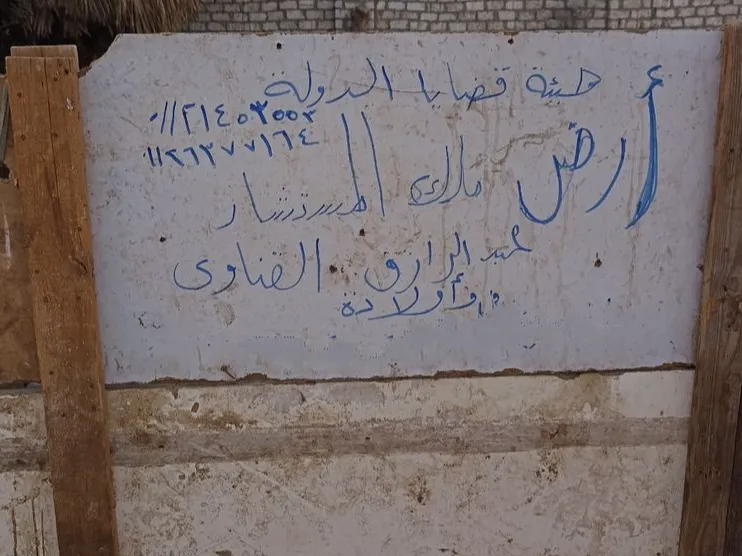 هيئة قضايا الدولة
٠١١٢١٤٠٣٥٥٣
٠١١٢٦٣٧٧١٦٤
أرض ملك المستشار
عبد الرازق القناوى
وأولادة